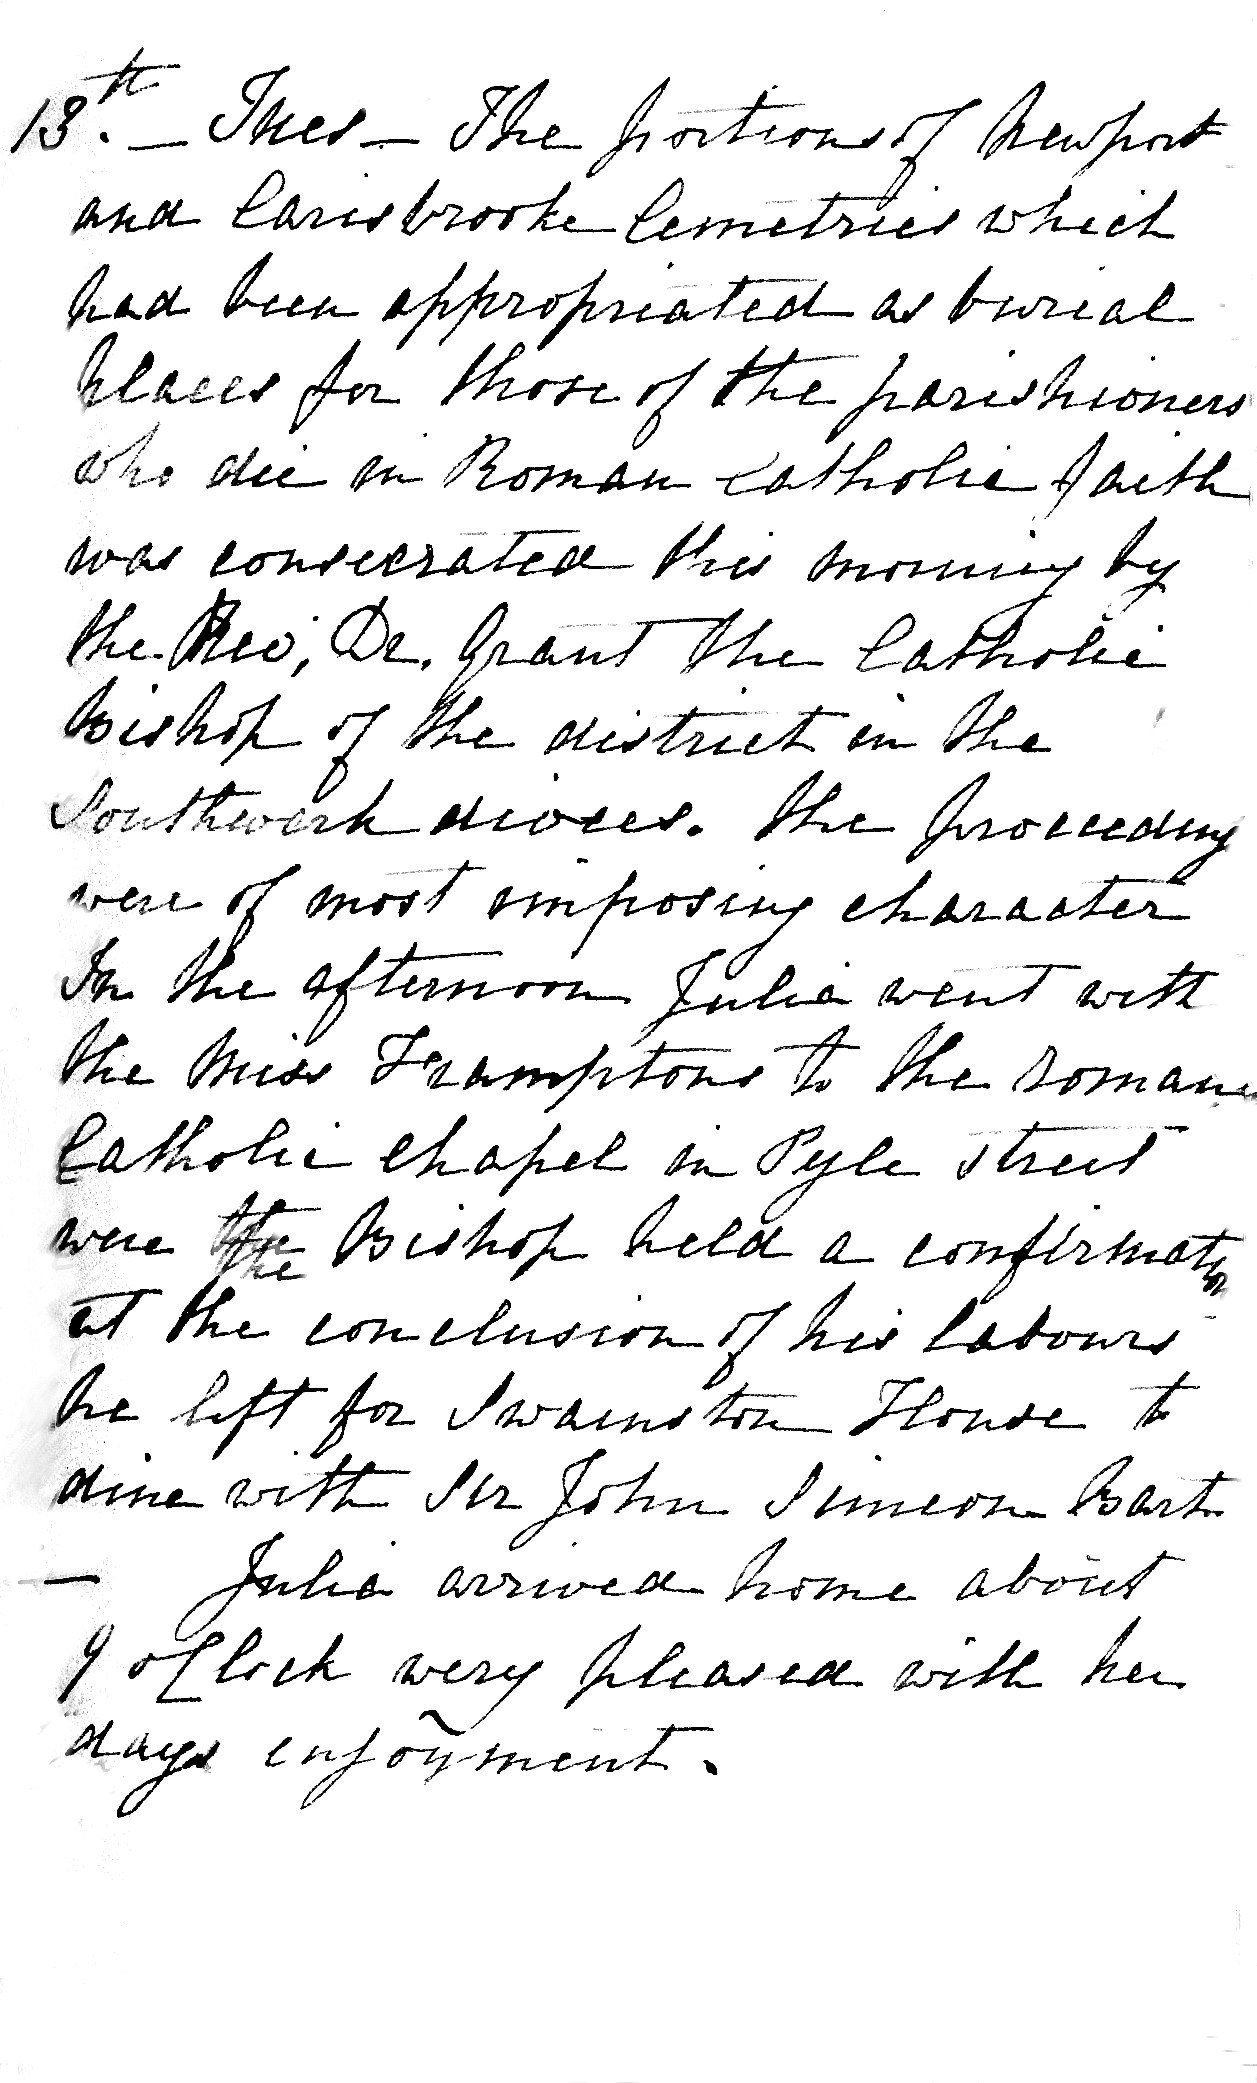 13th. — Tues — The portions of Newport
and Carisbrooke Cemetries which
had been appropriated as burial
places for those of the parishioners
who die in Roman Catholic faith
was consecrated this morning by
the Rev, Dr. Grant the Catholic
Bishop of the district in the
Southwark dioces. the proceeding
were of most imposing character
In the afternoon Julia went with
the Miss Framptons to the Roman
Catholic Chapel in Pyle street
were the Bishop held a confirmation
at the conclusion of his labours
he left for Swainston House to
dine with Sir John Simeon Bart.
— Julia arrived home about
9 oClock very pleased with her
days enjoyment.